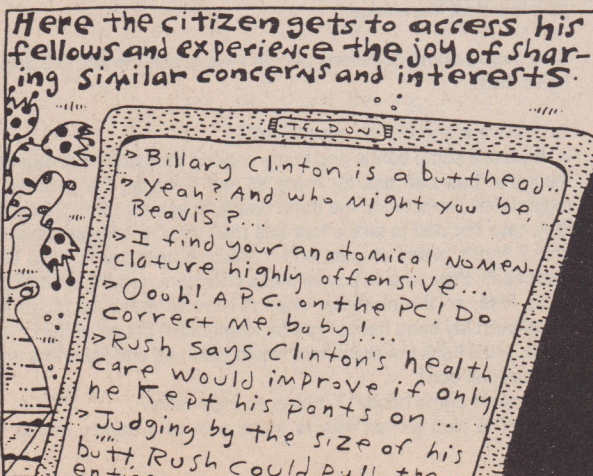 Here the citizen gets to access his
fellows and experience the joy of shar-
ing similar concerns and interests.
TELDON
> Billary Clinton is a butthead..
> Yeah? And who might you be,
Beavis?...
> I find your anatomical nomen-
clature highly offensive...
> Oooh! A P.C. on the PC! Do
correct me, baby!...
> Rush says Clinton's health
care would improve if only
he kept his pants on...
> Judging by the size of his
butt Rush could pull the